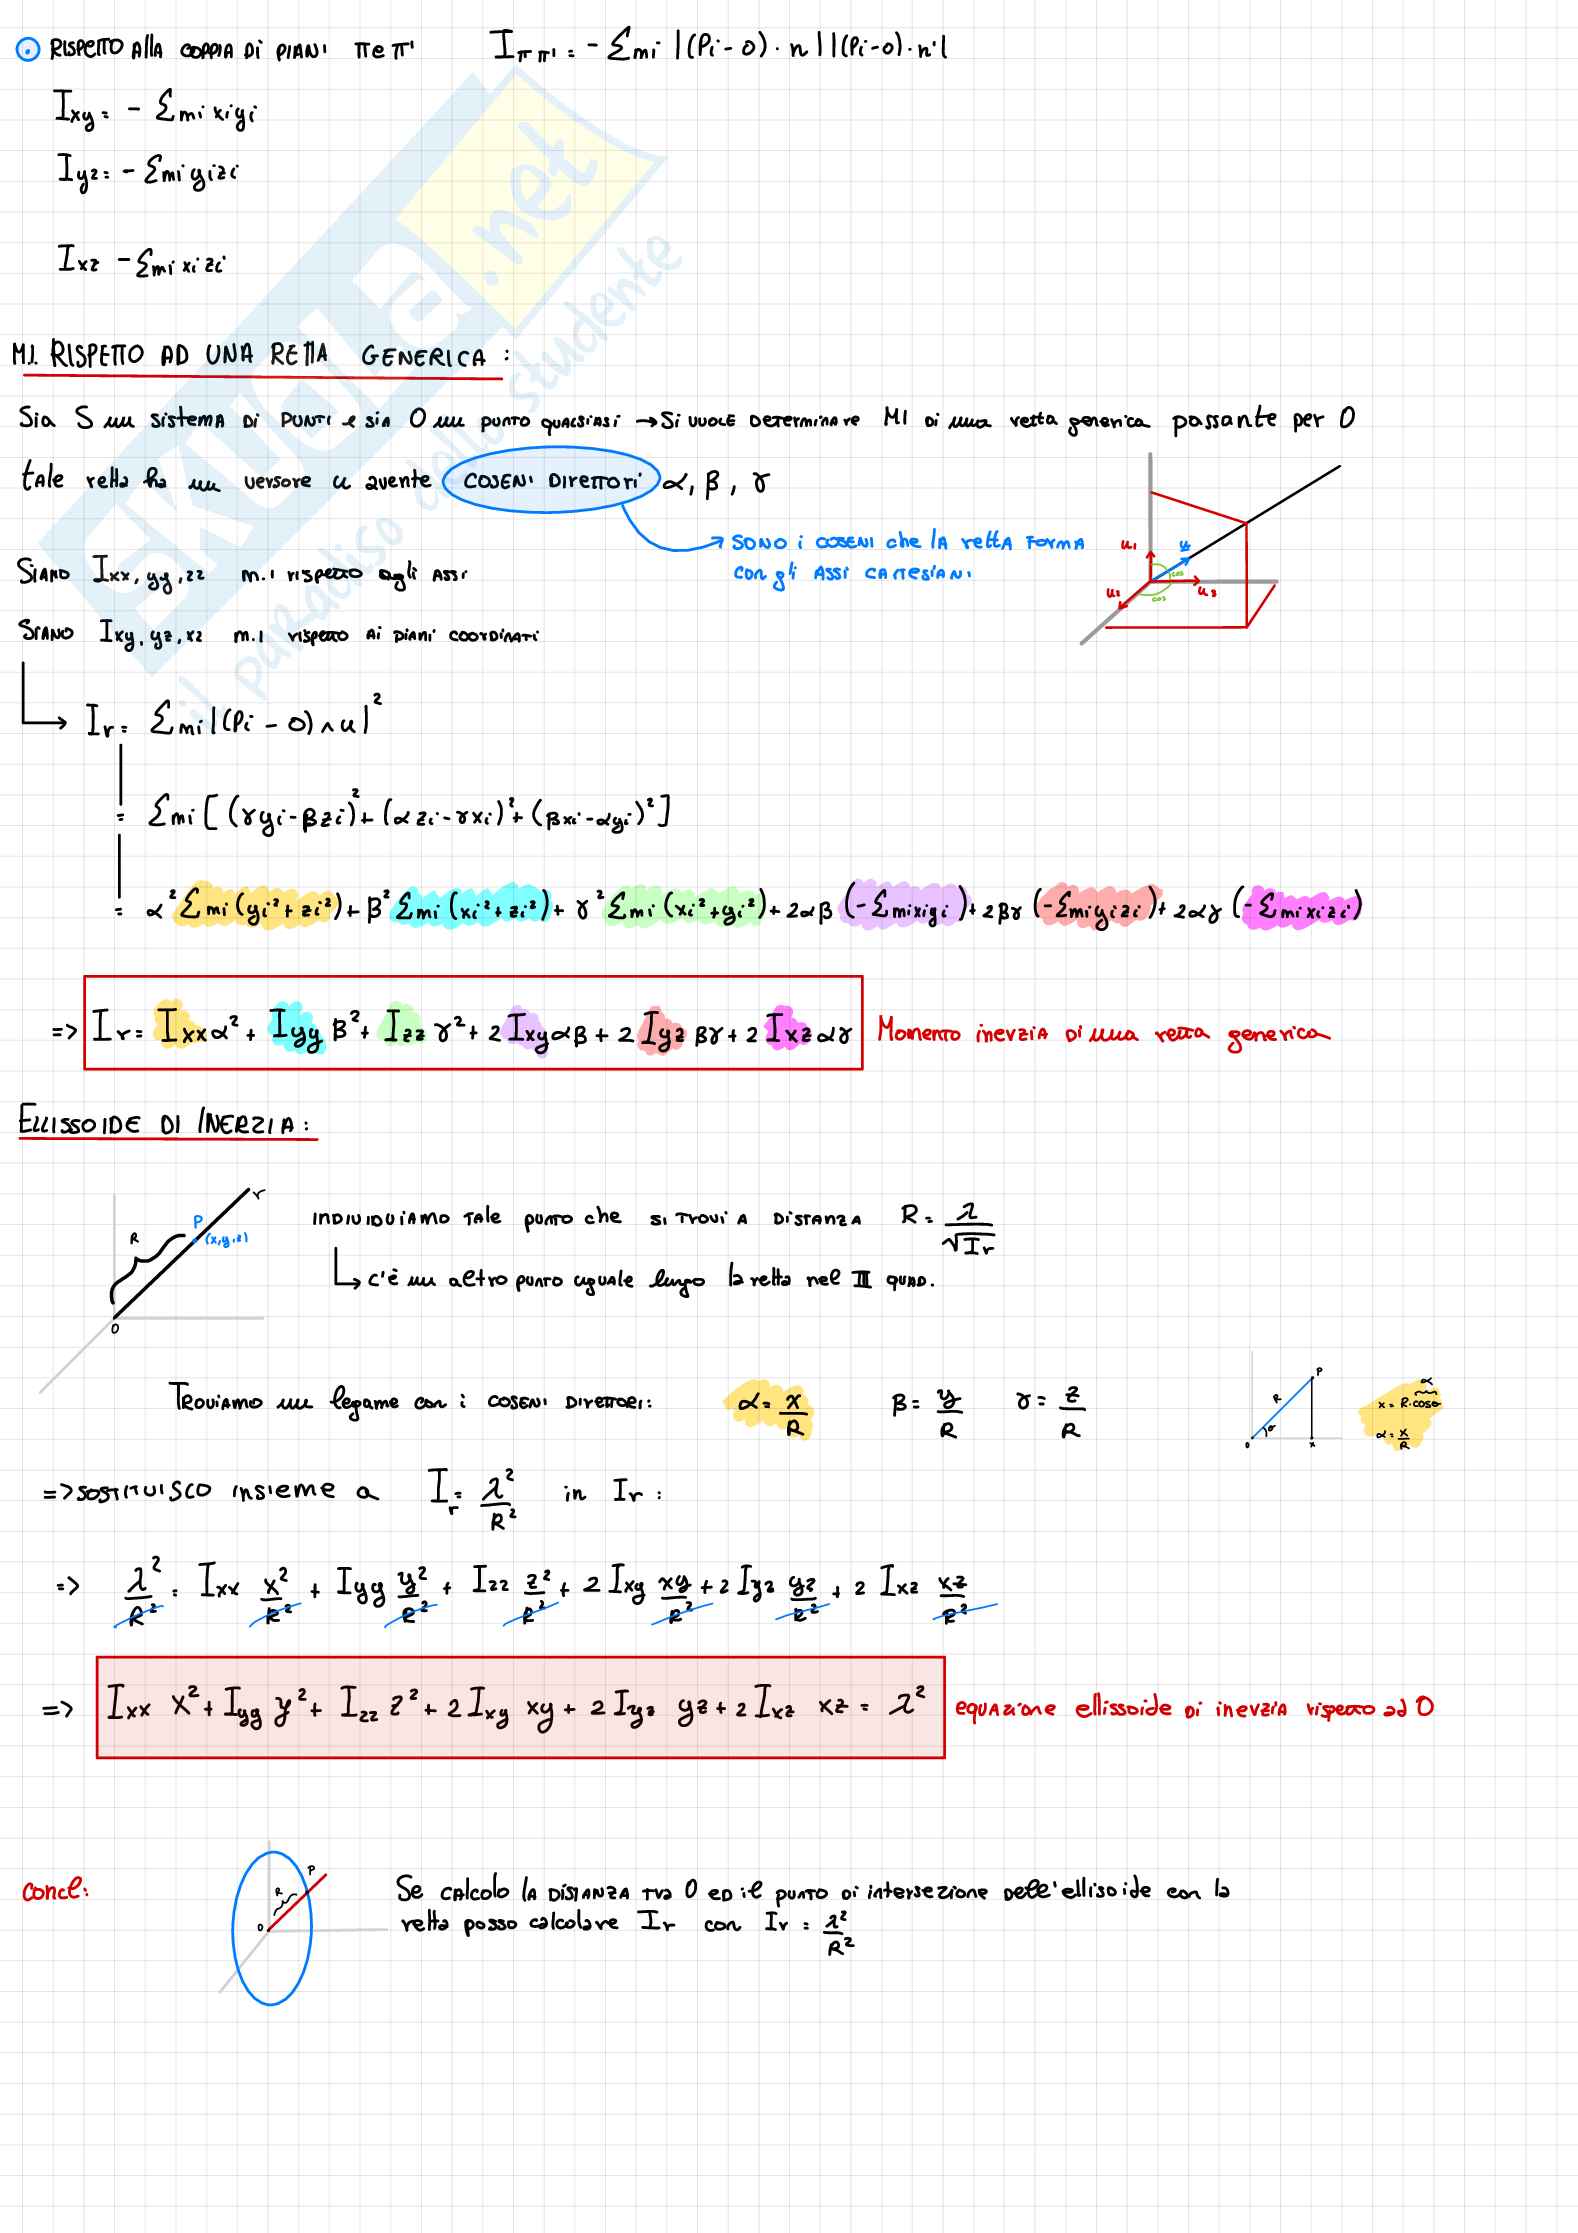 RISPETTO ALLA COPPIA DI PIANI π e π' I_ππ' = - Σ mi |(Pi - O) · n| |(Pi - O) · n'|
Ixy = - Σ mi xi yi
Iyz = - Σ mi yi zi
Ixz - Σ mi xi zi
M.I. RISPETTO AD UNA RETTA GENERICA :
Sia S un sistema di punti e sia O un punto qualsiasi → Si vuole determinare MI di una retta generica passante per O
tale retta ha un versore u avente COSENI DIRETTORI α, β, γ
→ SONO i COSENI che la retta forma
con gli assi cartesiani
u1 u cos u2 cos u3
Siano Ixx, yy, zz m.i rispetto agli assi
Siano Ixy, yz, xz m.i rispetto ai piani coordinati
→ Ir = Σ mi |(Pi - O) ∧ u|²
= Σ mi [ (γyi - βzi)² + (αzi - γxi)² + (βxi - αyi)² ]
= α² Σ mi (yi² + zi²) + β² Σ mi (xi² + zi²) + γ² Σ mi (xi² + yi²) + 2αβ (- Σ mi xi yi) + 2βγ (- Σ mi yi zi) + 2αγ (- Σ mi xi zi)
=> Ir = Ixx α² + Iyy β² + Izz γ² + 2 Ixy αβ + 2 Iyz βγ + 2 Ixz αγ Momento inerzia di una retta generica
ELLISSOIDE DI INERZIA :
r P (x,y,z) R O
INDIVIDUIAMO TALE punto che si trovi a distanza R = λ/√Ir
↳ c'è un altro punto uguale lungo la retta nel III QUAD.
Troviamo un legame con i coseni direttori: α = x/R β = y/R γ = z/R
P R θ O x
α
x = R · cosθ
α = x/R
=> sostituisco insieme a Ir = λ²/R² in Ir :
=> λ²/R² = Ixx x²/R² + Iyy y²/R² + Izz z²/R² + 2 Ixy xy/R² + 2 Iyz yz/R² + 2 Ixz xz/R²
=> Ixx x² + Iyy y² + Izz z² + 2 Ixy xy + 2 Iyz yz + 2 Ixz xz = λ² equazione ellissoide di inerzia rispetto ad O
concl:
P R O
Se calcolo la distanza tra O ed il punto di intersezione dell'ellisoide con la
retta posso calcolare Ir con Ir = λ²/R²
SKUOLA.net
il paradiso dello studente